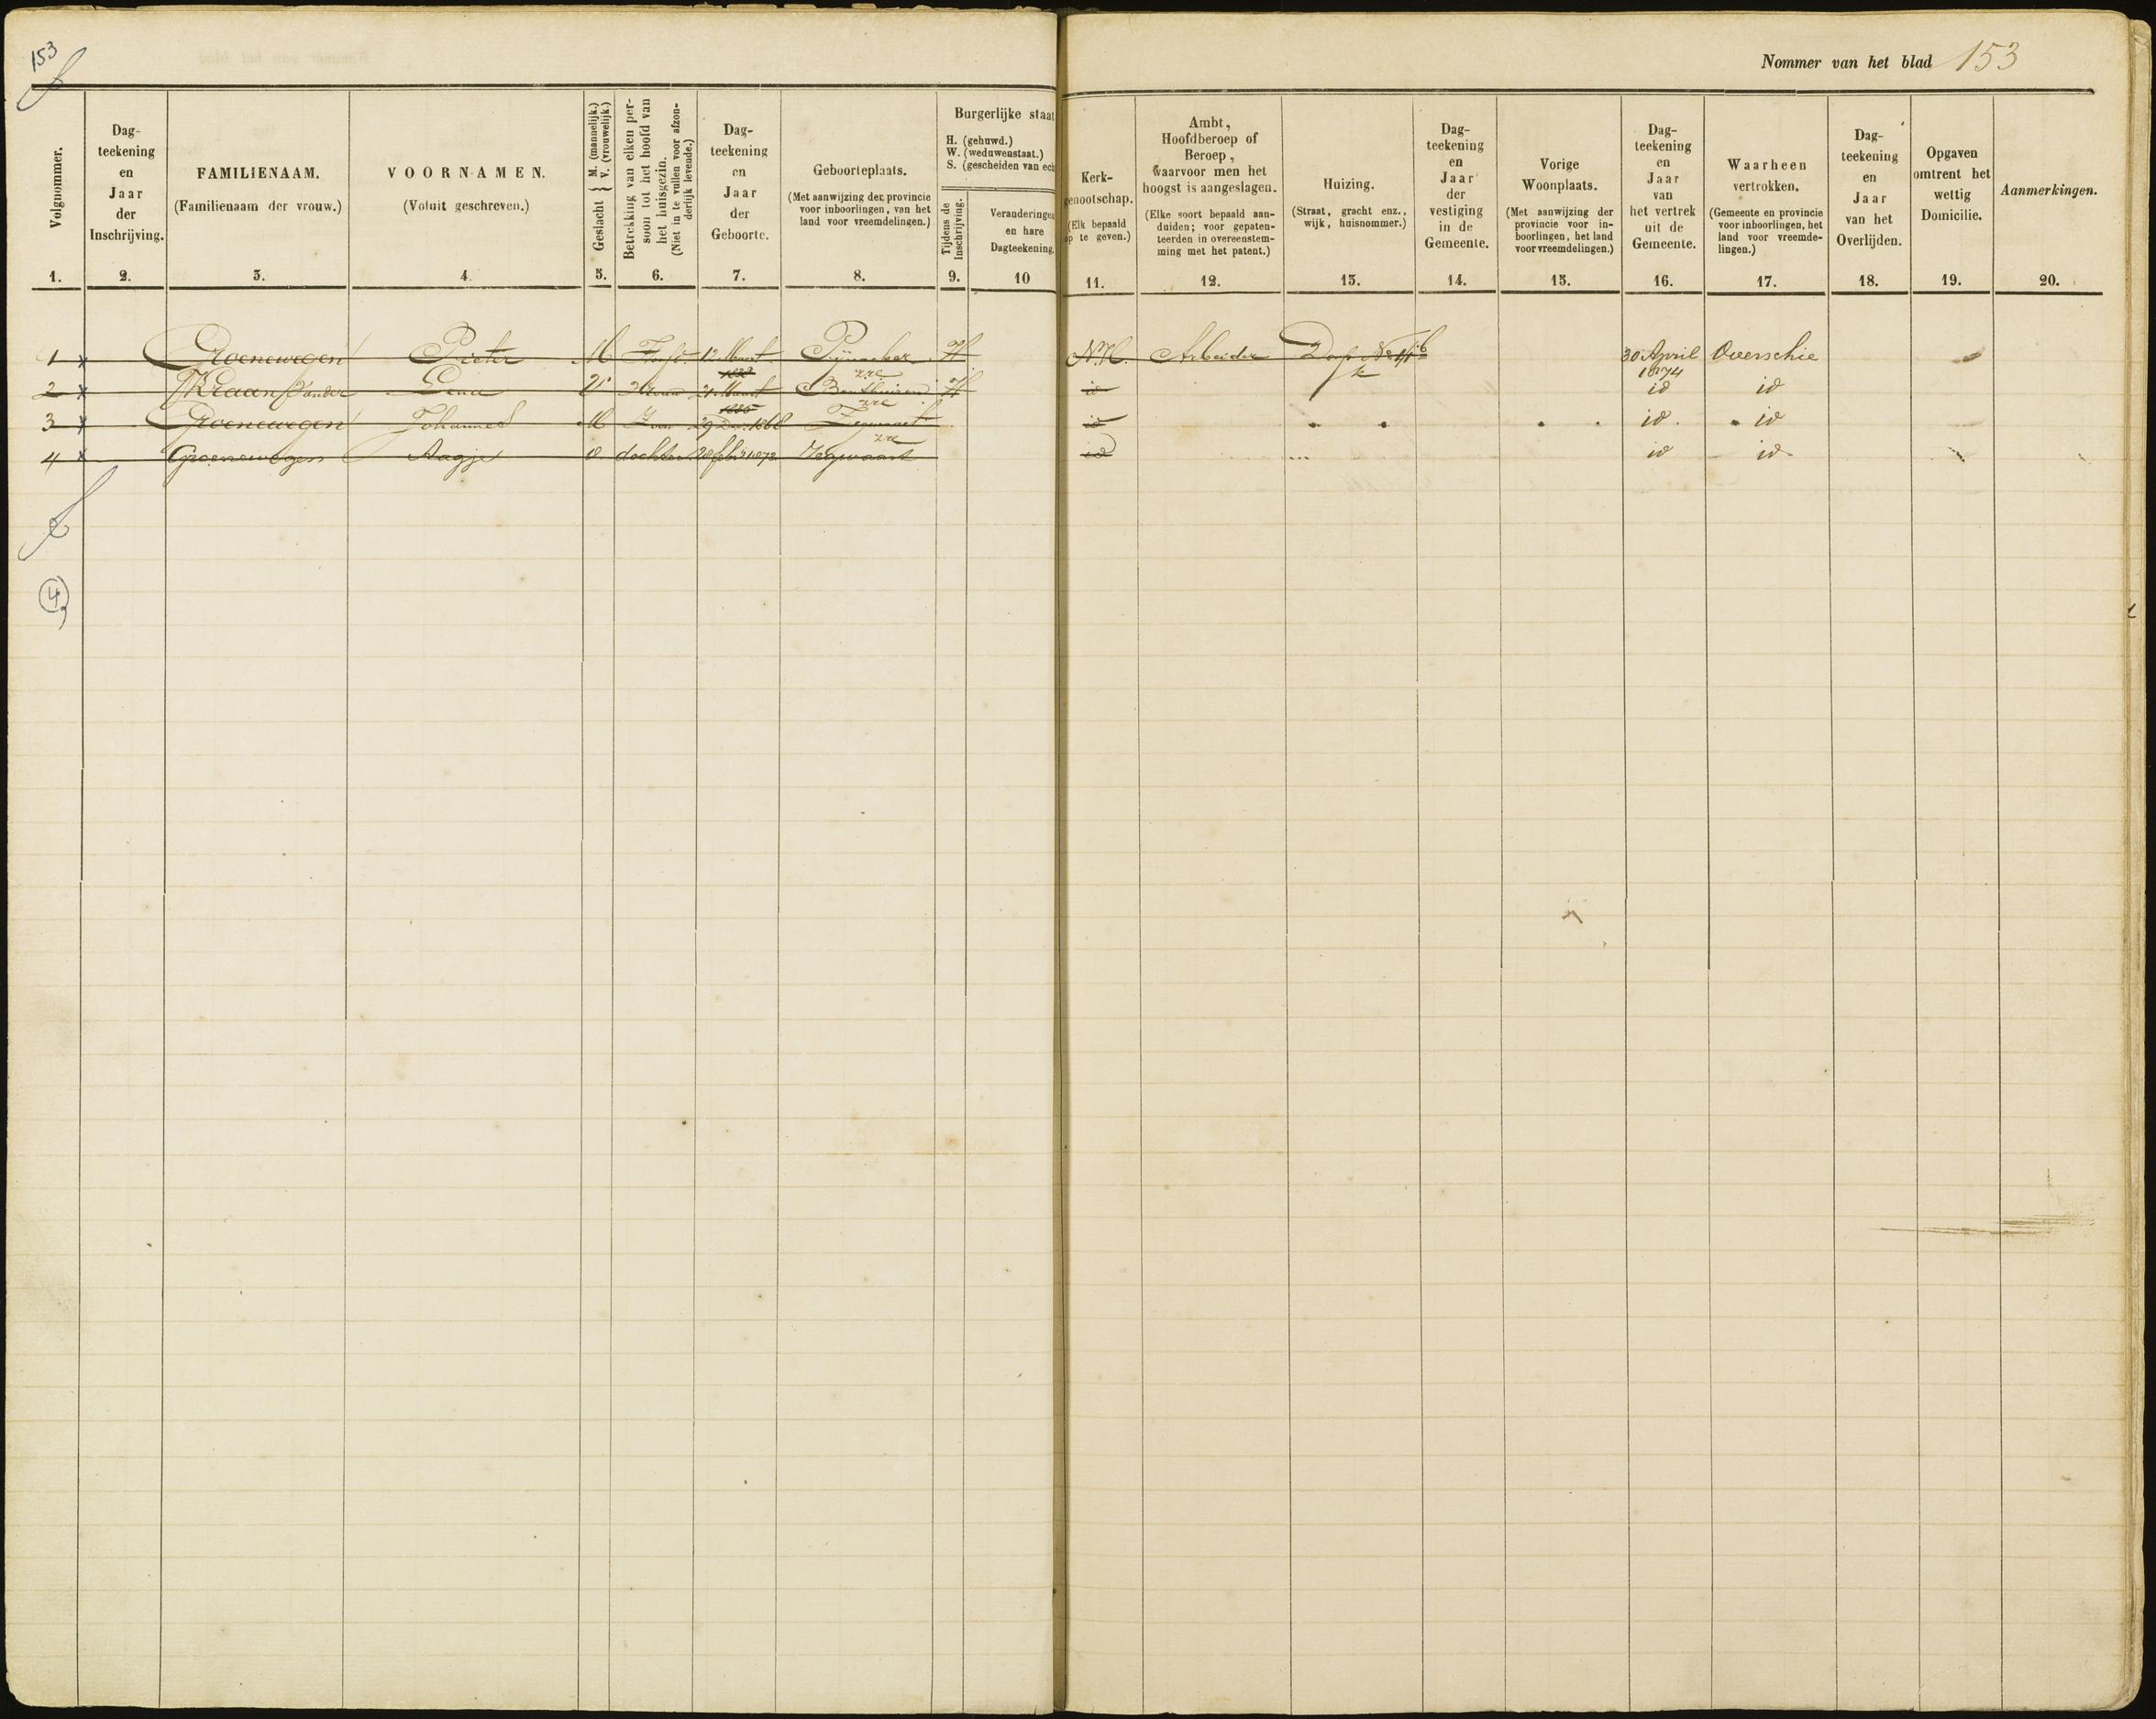 153
Nommer van het blad 153
Volgnommer.
1.
Dag-
teekening
en
Jaar
der
Inschrijving.
2.
FAMILIENAAM.
(Familienaam der vrouw.)
3.
VOORNAMEN.
(Voluit geschreven.)
4.
Geslacht { M. (mannelijk.)
V. (vrouwelijk.)
5.
Betrekking van elken per-
soon tot het hoofd van
het huisgezin.
(Niet in te vullen voor afzon-
derlijk levende.)
6.
Dag-
teekening
en
Jaar
der
Geboorte.
7.
Geboorteplaats.
(Met aanwijzing der provincie
voor inboorlingen, van het
land voor vreemdelingen.)
8.
Burgerlijke staat
H. (gehuwd.)
W. (weduwenstaat.)
S. (gescheiden van ech
Tijdens de
Inschrijving.
9.
Veranderingen
en hare
Dagteekening.
10
Kerk-
genootschap.
(Elk bepaald
op te geven.)
11.
Ambt,
Hoofdberoep of
Beroep,
waarvoor men het
hoogst is aangeslagen.
(Elke soort bepaald aan-
duiden; voor gepaten-
teerden in overeenstem-
ming met het patent.)
12.
Huizing.
(Straat, gracht enz.,
wijk, huisnommer.)
13.
Dag-
teekening
en
Jaar
der
vestiging
in de
Gemeente.
14.
Vorige
Woonplaats.
(Met aanwijzing der
provincie voor in-
boorlingen, het land
voor vreemdelingen.)
15.
Dag-
teekening
en
Jaar
van
het vertrek
uit de
Gemeente.
16.
Waarheen
vertrokken.
(Gemeente en provincie
voor inboorlingen, het
land voor vreemde-
lingen.)
17.
Dag-
teekening
en
Jaar
van het
Overlijden.
18.
Opgaven
omtrent het
wettig
Domicilie.
19.
Aanmerkingen.
20.
1 x Groenewegen Pieter M Hfd. 12 Maart Pijnacker H N.H. Arbeider Dorp No 30 April Overschie
zre 1874
2 x Kraan van der Lena V Vrouw 21 Maart Benthuizen H id id id
zre
3 x Groenewegen Johannes M Zoon 29 Dec. 1868 Zegwaart id id id
zre
4 x Groenewegen Aagje v. dochter 28 febr 1872 Zegwaart id id id
4